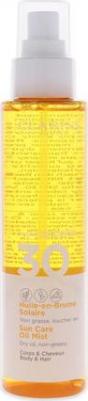 CLARINS
30
Huile-en-Brume
Solaire
Sun Care
Oil Mist
Dry oil, non-greasy
Corps & Cheveux
Body & Hair